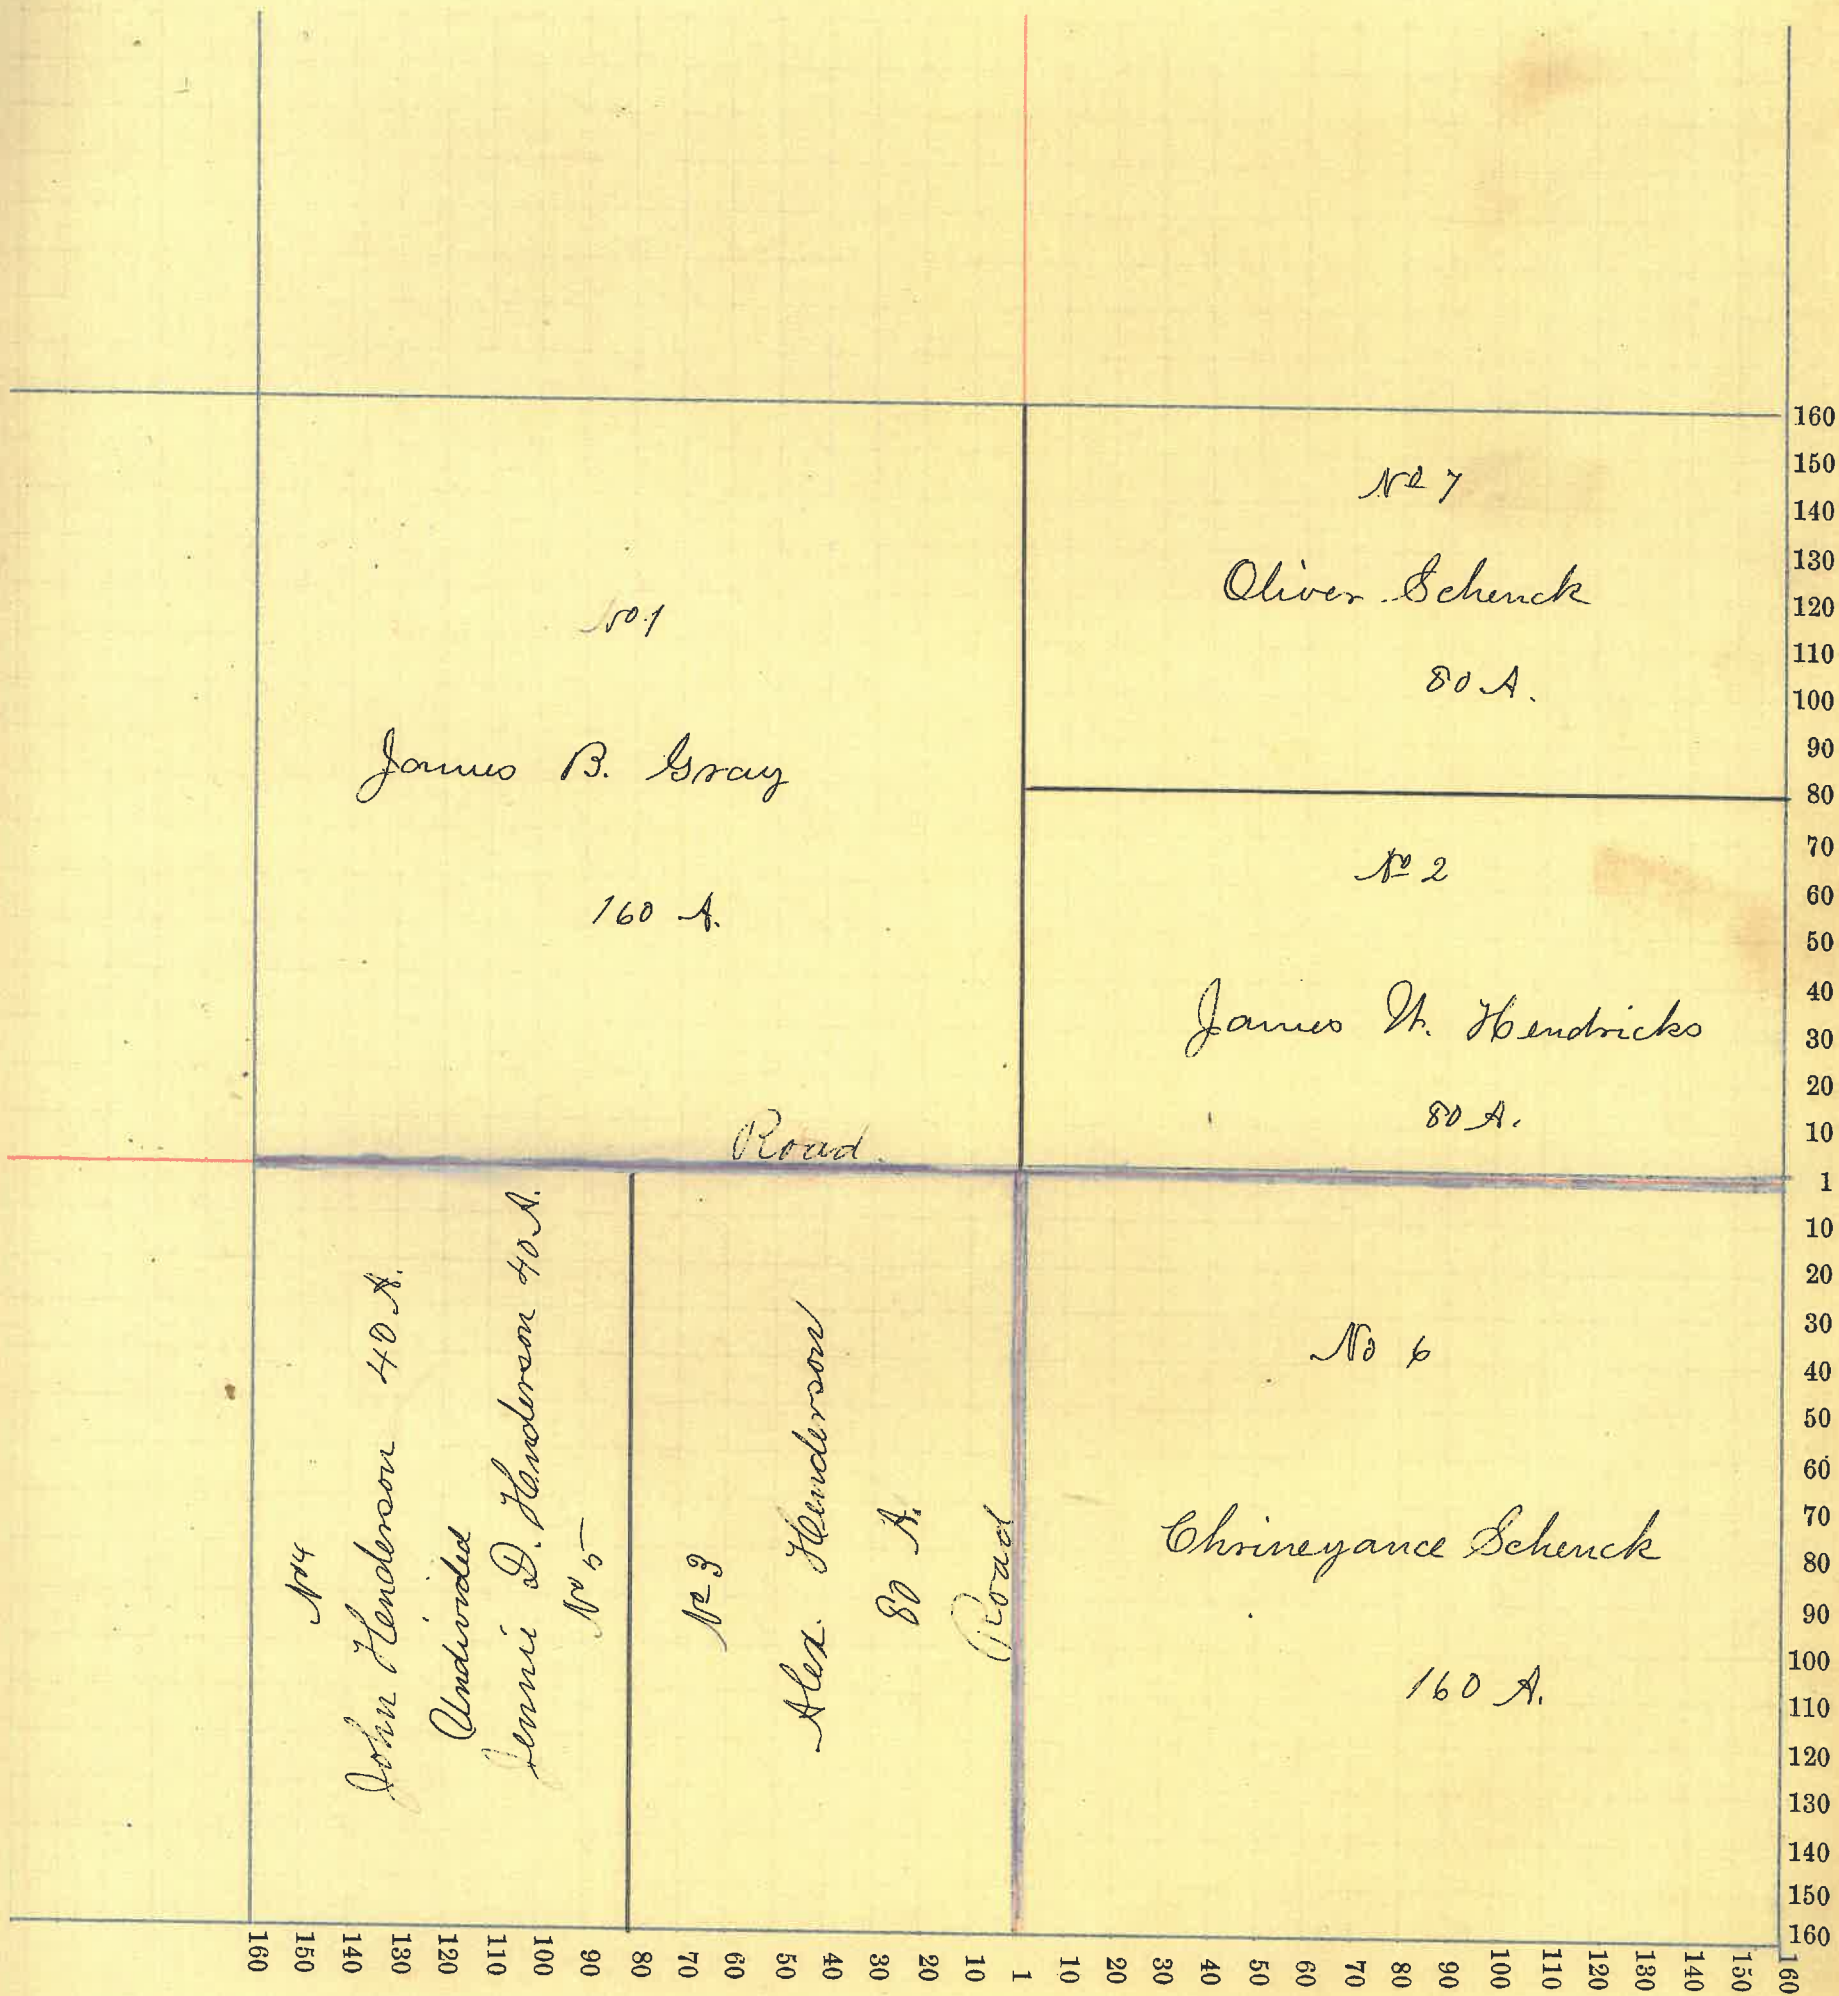 No. 1
James B. Gray
160 A.
Road
No 7
Oliver Schenck
80 A.
No 2
James W. Hendricks
80 A.
No 4
John Henderson 40 A.
Undivided
Jennie D. Henderson 40 A.
No 5
No 3
Alex. Henderson
80 A.
Road
No 6
Chrineyance Schenck
160 A.
160
150
140
130
120
110
100
90
80
70
60
50
40
30
20
10
1
10
20
30
40
50
60
70
80
90
100
110
120
130
140
150
160
160 150 140 130 120 110 100 90 80 70 60 50 40 30 20 10 1 10 20 30 40 50 60 70 80 90 100 110 120 130 140 150 160